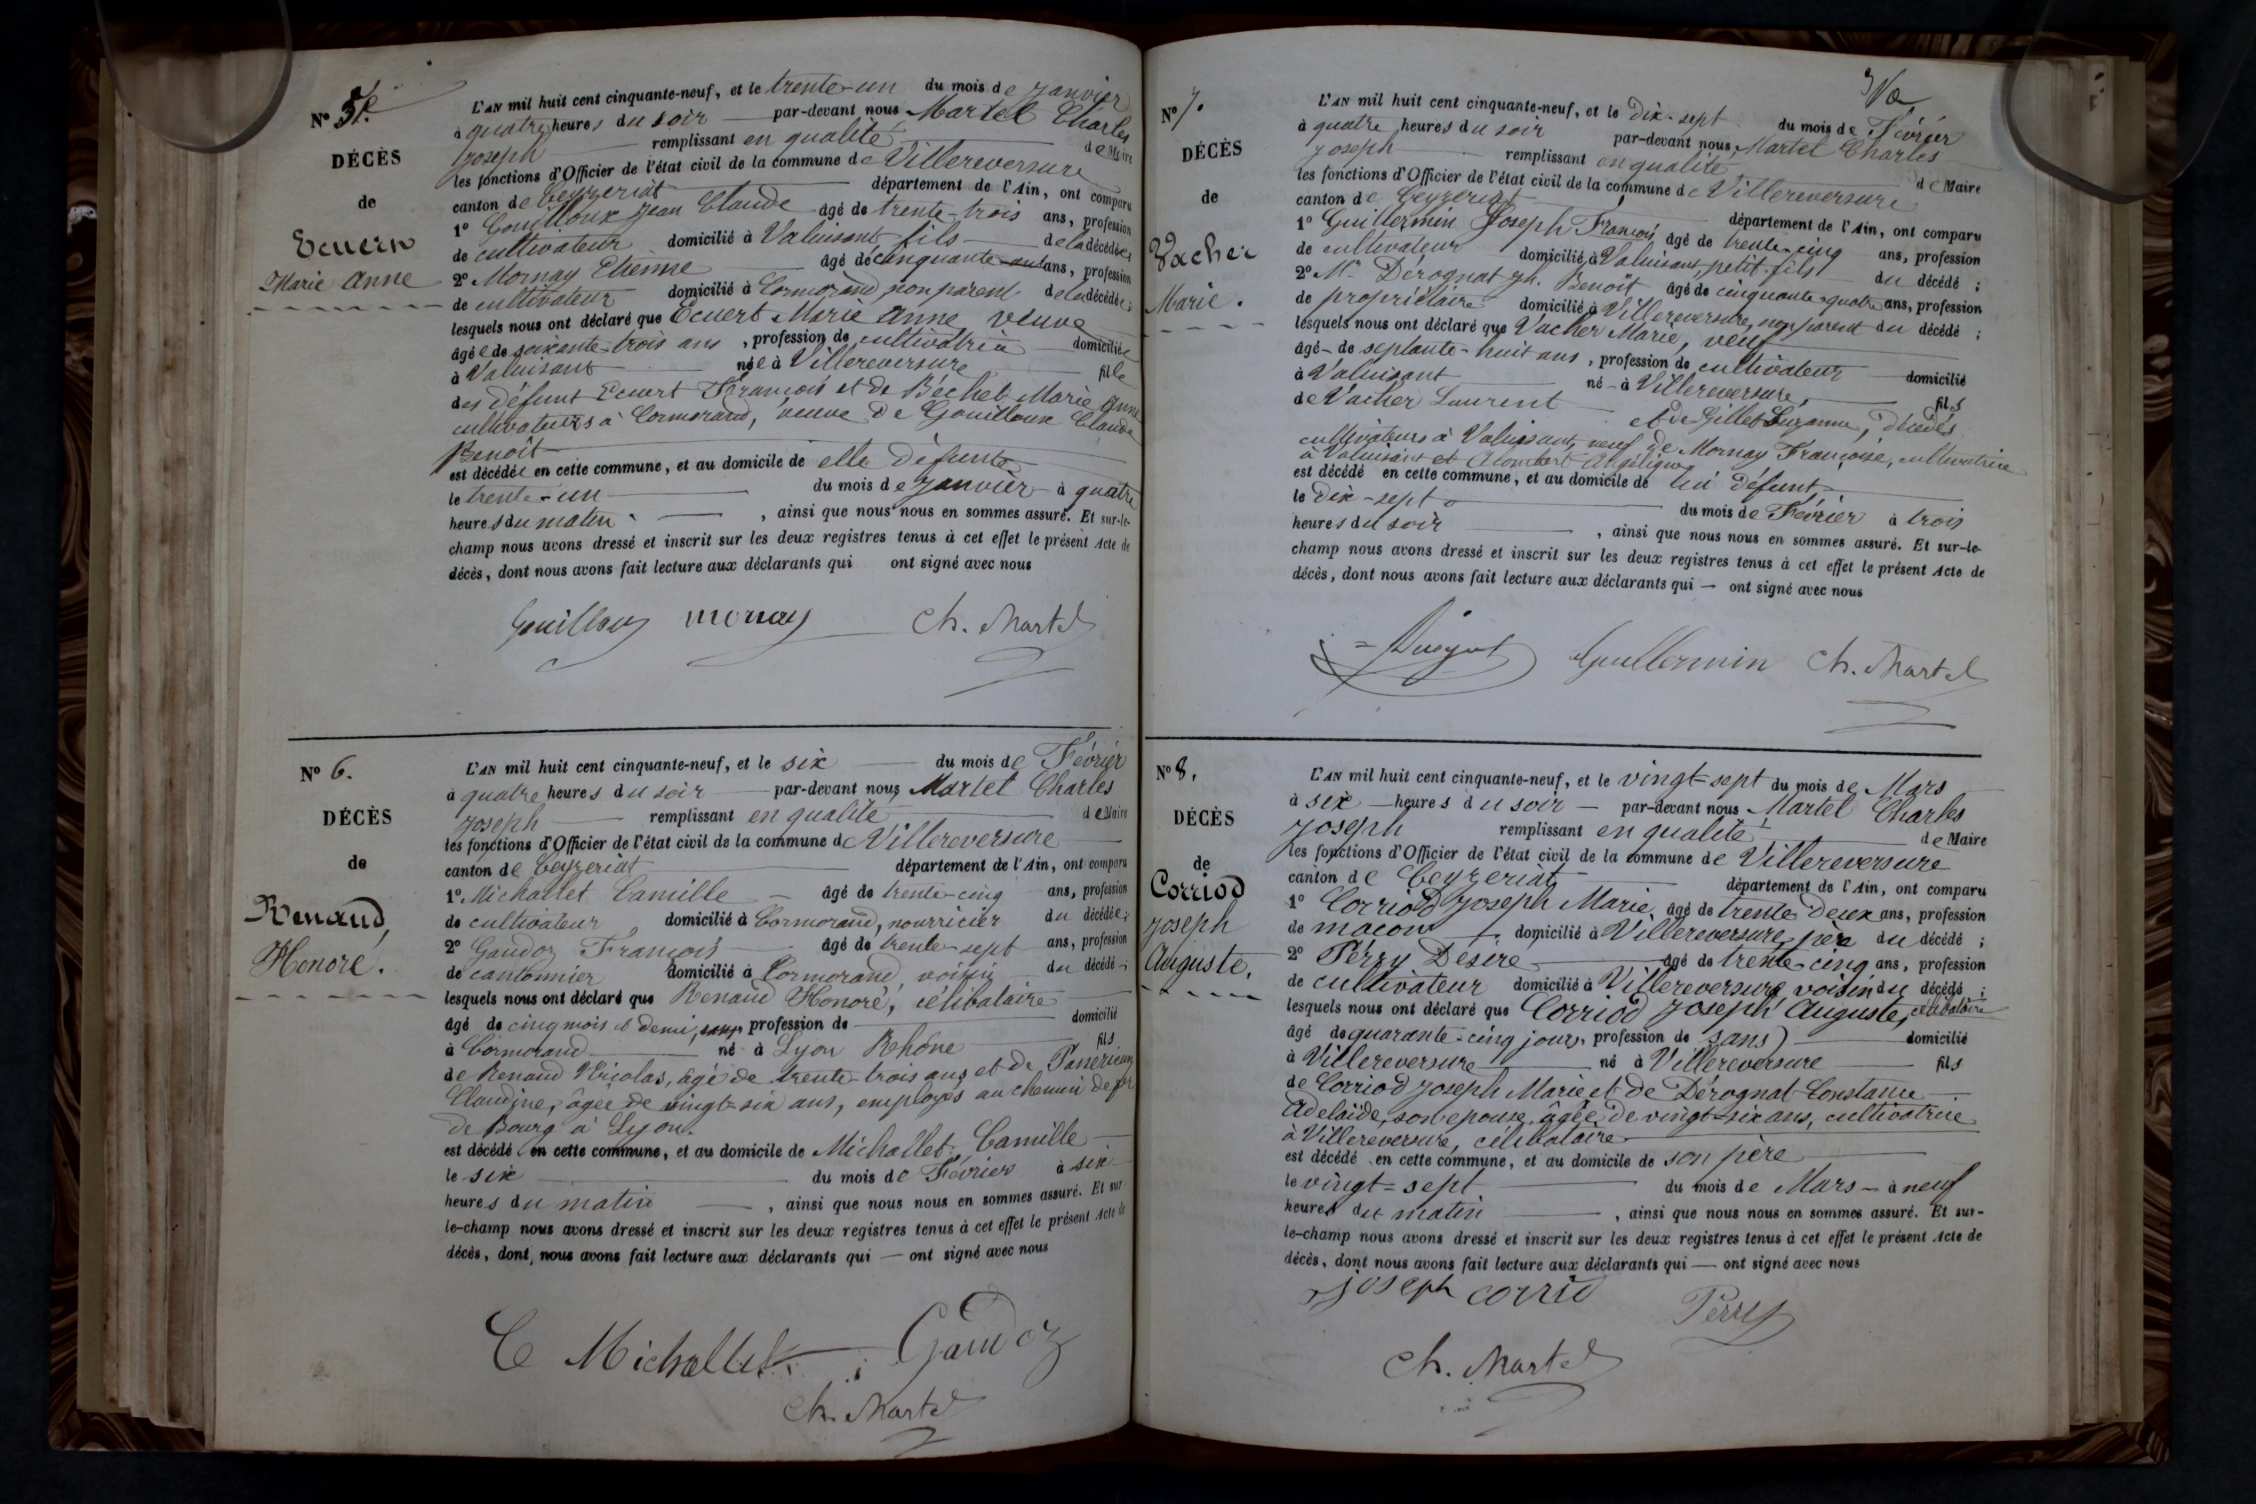 N° 5.
DÉCÈS
de
Ecuert
Marie Anne
L'AN mil huit cent cinquante-neuf, et le trente-un du mois de Janvier
à quatre heures du soir par-devant nous Martel Charles
Joseph remplissant en qualité de Maire
les fonctions d'Officier de l'état civil de la commune de Villereversure
canton de Ceyzeriat département de l'Ain, ont comparu
1° Gouilloux Jean Claude âgé de trente-trois ans, profession
de cultivateur domicilié à Valuisant fils de la décédée;
2° Mornay Etienne âgé de cinquante ans, profession
de cultivateur domicilié à Cormorand, non parent de la décédée;
lesquels nous ont déclaré que Ecuert Marie Anne veuve
âgée de soixante-trois ans, profession de cultivatrice domiciliée
à Valuisant née à Villereversure fille
des défunt Ecuert François et de Béchet Marie Anne
cultivateurs à Cormorand, veuve de Gouilloux Claude
Benoît
est décédée en cette commune, et au domicile de elle défunte
le trente-un du mois de Janvier à quatre
heures du matin, ainsi que nous nous en sommes assuré. Et sur-le-
champ nous avons dressé et inscrit sur les deux registres tenus à cet effet le présent Acte de
décès, dont nous avons fait lecture aux déclarants qui ont signé avec nous
Gouilloux Mornay Ch. Martel
N° 6.
DÉCÈS
de
Renaud,
Honoré.
L'AN mil huit cent cinquante-neuf, et le six du mois de Février
à quatre heures du soir par-devant nous Martel Charles
Joseph remplissant en qualité de Maire
les fonctions d'Officier de l'état civil de la commune de Villereversure
canton de Ceyzeriat département de l'Ain, ont comparu
1° Michallet Camille âgé de trente-cinq ans, profession
de cultivateur domicilié à Cormorand, nourricier du décédé;
2° Gaudoz François âgé de trente-sept ans, profession
de cantonnier domicilié à Cormorand, voisin du décédé;
lesquels nous ont déclaré que Renaud Honoré, célibataire
âgé de cinq mois et demi, sans profession de domicilié
à Cormorand né à Lyon Rhône fils
de Renaud Nicolas, âgé de trente-trois ans et de
Claudine, âgée de vingt-six ans, employés au chemin de fer
de Bourg à Lyon.
est décédé en cette commune, et au domicile de Michallet Camille
le six du mois de Février à six
heures du matin, ainsi que nous nous en sommes assuré. Et sur
le-champ nous avons dressé et inscrit sur les deux registres tenus à cet effet le présent Acte de
décès, dont nous avons fait lecture aux déclarants qui — ont signé avec nous
C Michallet Gaudoz
Ch. Martel
N° 7.
DÉCÈS
de
Vacher
Marie.
L'AN mil huit cent cinquante-neuf, et le dix-sept du mois de Février
à quatre heures du soir par-devant nous Martel Charles
Joseph remplissant en qualité de Maire
les fonctions d'Officier de l'état civil de la commune de Villereversure
canton de Ceyzeriat département de l'Ain, ont comparu
1° Guillermin Joseph François âgé de trente-cinq ans, profession
de cultivateur domicilié à Valuisant, petit-fils du décédé;
2° Mr Dérognat Jh. Benoît âgé de cinquante-quatre ans, profession
de propriétaire domicilié à Villereversure, non parent du décédé;
lesquels nous ont déclaré que Vacher Marie, veuf
âgé de septante-huit ans, profession de cultivateur domicilié
à Valuisant né à Villereversure, fils
de Vacher Laurent et de Gillet Suzanne, décédés
cultivateurs à Valuisant, veuf de Mornay Françoise, cultivatrice
à Valuisant et Alombert Angélique
est décédé en cette commune, et au domicile de lui défunt
le dix-sept du mois de Février à trois
heures du soir, ainsi que nous nous en sommes assuré. Et sur-le-
champ nous avons dressé et inscrit sur les deux registres tenus à cet effet le présent Acte de
décès, dont nous avons fait lecture aux déclarants qui — ont signé avec nous
Guillermin Ch. Martel
N° 8.
DÉCÈS
de
Corriod
Joseph
Auguste.
L'AN mil huit cent cinquante-neuf, et le vingt-sept du mois de Mars
à six heures du soir — par-devant nous Martel Charles
Joseph remplissant en qualité de Maire
les fonctions d'Officier de l'état civil de la commune de Villereversure
canton de Ceyzeriat département de l'Ain, ont comparu
1° Corriod Joseph Marie âgé de trente deux ans, profession
de maçon domicilié à Villereversure, père du décédé;
2° Perry Désiré âgé de trente-cinq ans, profession
de cultivateur domicilié à Villereversure voisin du décédé;
lesquels nous ont déclaré que Corriod Joseph Auguste, célibataire
âgé de quarante-cinq jours, profession de (sans) domicilié
à Villereversure né à Villereversure fils
de Corriod Joseph Marie et de Dérognat Constance
Adelaïde, son épouse, âgée de vingt-six ans, cultivatrice
à Villereversure, célibataire
est décédé en cette commune, et au domicile de son père
le vingt-sept du mois de Mars — à neuf
heures du matin, ainsi que nous nous en sommes assuré. Et sur-
le-champ nous avons dressé et inscrit sur les deux registres tenus à cet effet le présent Acte de
décès, dont nous avons fait lecture aux déclarants qui — ont signé avec nous
joseph corriod Perry
Ch. Martel